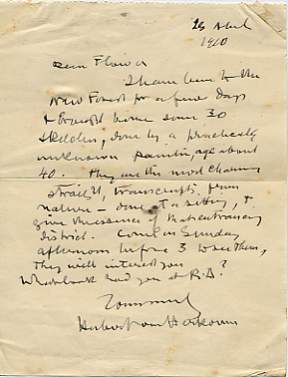 25 April
1910
Dear Flower
I have been to the
New Forest for a few days
& brought home some 30
sketches, done by a practically
unknown painter, age about
40. They are the most charming
straight transcripts from
nature – done at a sitting, &
give the essence of that extraordinary
district. Come on Sunday
afternoon before 3 to see them,
they will interest you
What luck had you at R.A?
Yours sincerely
Hubert von Herkomer